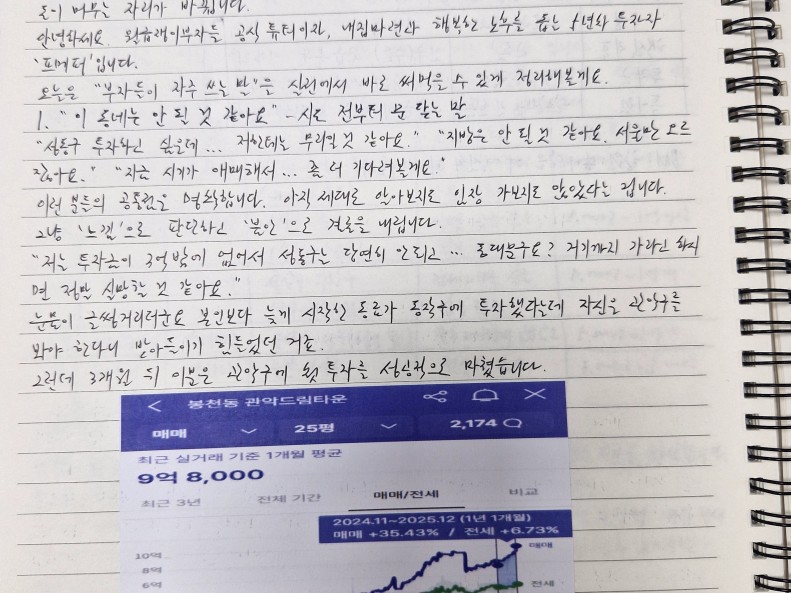 돈이 머무는 자리가 바뀝니다.
안녕하세요. 월급쟁이부자들 공식 튜터이자, 내집마련과 행복한 노후를 돕는 투자자
'프메퍼'입니다.
오늘은 "부자들이 자주 쓰는 말"을 실전에서 바로 써먹을 수 있게 정리해볼게요.
1. "이 동네는 안 될 것 같아요" - 시도 전부터 문 닫는 말
"성동구 투자하고 싶은데... 저한테는 무리일 것 같아요." "지방은 안 될 것 같아요. 서울만 오르
잖아요." "지금 시기가 애매해서... 좀 더 기다려볼게요."
이런 분들의 공통점은 명확합니다. 아직 제대로 알아보지도 임장 가보지도 않았다는 겁니다.
그냥 '느낌'으로 판단하고 '불안'으로 결론을 내립니다.
"저는 투자금이 3억밖에 없어서 성동구는 당연히 안되고... 동대문구요? 거기까지 가라고 하시
면 정말 실망할 것 같아요."
눈물이 글썽거리더군요 본인보다 늦게 시작한 동료가 동작구에 투자했다는데 자신은 관악구를
봐야 한다니 받아들이기 힘들었던 거죠.
그런데 3개월 뒤 이분은 관악구에 첫 투자를 성심적으로 마쳤습니다.
봉천동 관악드림타운
매매 25평 2,174
최근 실거래 기준 1개월 평균
9억 8,000
최근 3년 전체 기간 매매/전세 비교
2024.11~2025.12 (1년 1개월)
매매 +35.43% / 전세 +6.73%
10억 매매
8억
6억 전세